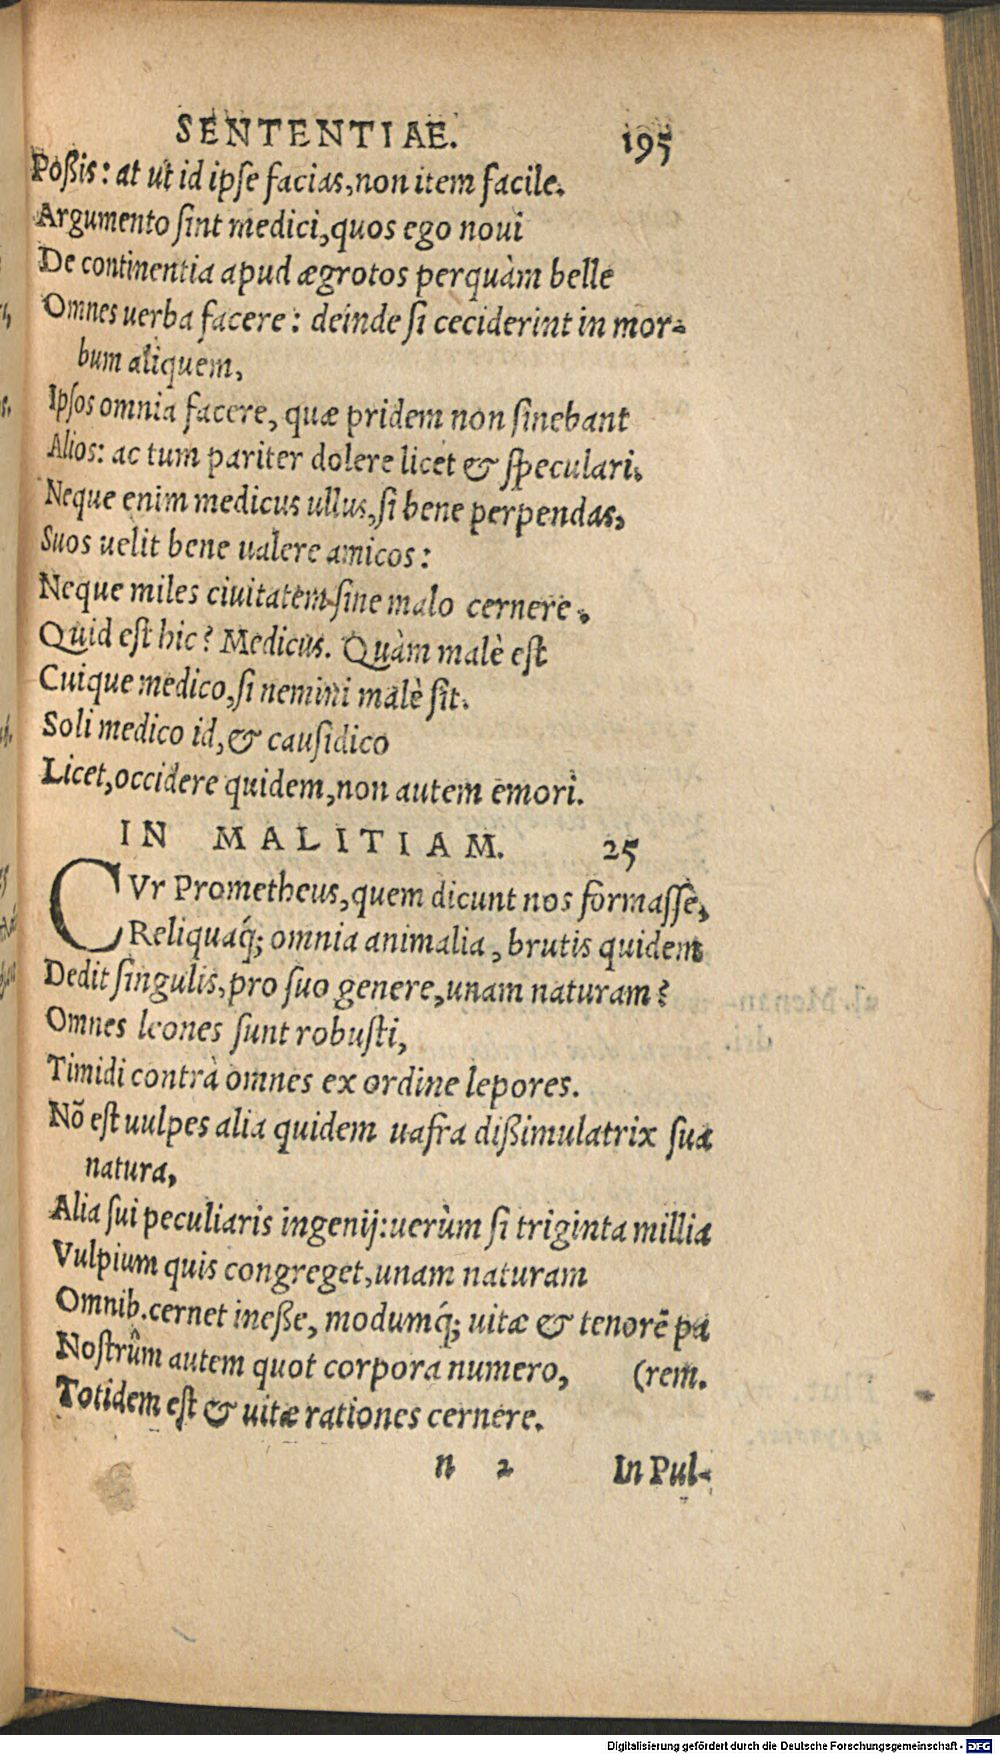 SENTENTIAE. 195
Poßis: at ut id ipſe facias, non item facile.
Argumento ſint medici, quos ego noui
De continentia apud ægrotos perquàm belle
Omnes uerba facere: deinde ſi ceciderint in mor-
bum aliquem,
Ipſos omnia facere, quæ pridem non ſinebant
Alios: ac tum pariter dolere licet & ſpeculari.
Neque enim medicus ullus, ſi bene perpendas,
Suos uelit bene ualere amicos:
Neque miles ciuitatem ſine malo cernere.
Quid eſt hic? Medicus. Quàm malè eſt
Cuique medico, ſi nemini malè ſit.
Soli medico id, & cauſidico
Licet, occidere quidem, non autem emori.
IN MALITIAM. 25
CVr Prometheus, quem dicunt nos formaſſe,
Reliquaq́; omnia animalia, brutis quidem
Dedit ſingulis, pro ſuo genere, unam naturam?
Omnes leones ſunt robuſti,
Timidi contrà omnes ex ordine lepores.
Nõ eſt uulpes alia quidem uafra dißimulatrix ſua
natura,
Alia ſui peculiaris ingenij: uerùm ſi triginta millia
Vulpium quis congreget, unam naturam
Omnib. cernet ineße, modumq́; uitæ & tenorẽ pa
Noſtrûm autem quot corpora numero, (rem.
Totidem eſt & uitæ rationes cernere.
n 2 In Pul-
Digitalisierung gefördert durch die Deutsche Forschungsgemeinschaft - DFG